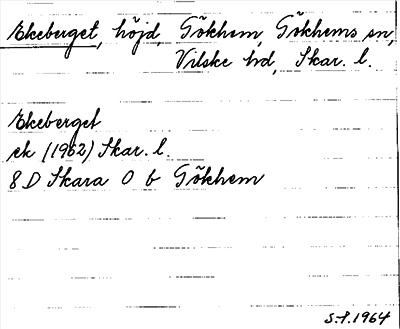 Ekeberget, höjd, Gökhem, Gökhems sn,
Vilske hd, Skar. l.
Ekeberget
ek (1962) Skar. l.
8 D Skara 0 b Gökhem
S.F.1964